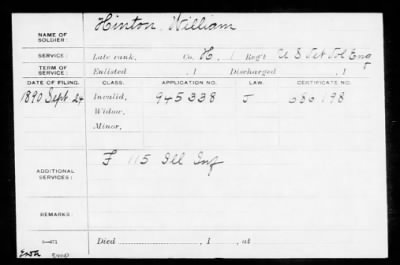 NAME OF SOLDIER: Hinton, William
SERVICE: Late rank, Co. H, 1 Reg't U S Vet Vol Eng
TERM OF SERVICE: Enlisted , 1 Discharged , 1
DATE OF FILING. CLASS. APPLICATION NO. LAW. CERTIFICATE NO.
1890 Sept 24 Invalid, 945338 J 680198
Widow,
Minor,
ADDITIONAL SERVICES: F 115 Ill Inf
REMARKS:
Died , 1 , at